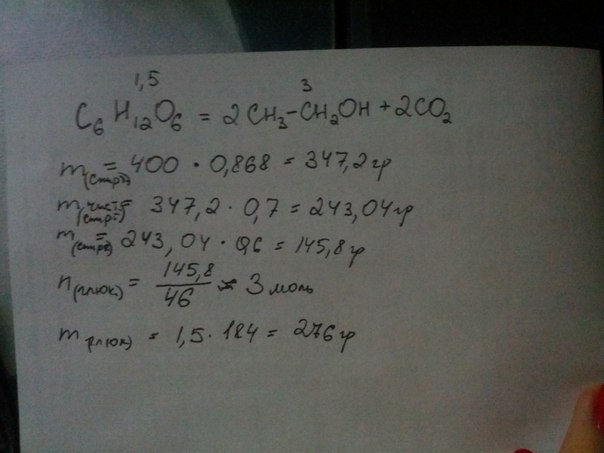 1,5 3
C₆H₁₂O₆ = 2CH₃-CH₂OH + 2CO₂
m(спрт) = 400 · 0,868 = 347,2 гр
m чист(спрт) = 347,2 · 0,7 = 243,04 гр
m = 243,04 · 0,6 = 145,8 гр
n(глюк) = 145,8/46 ≈ 3 моль
m(глюк) = 1,5 · 184 = 276 гр